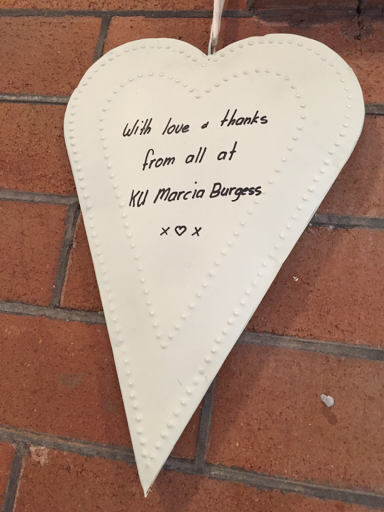 With love & thanks
from all at
KU Marcia Burgess
x♡x